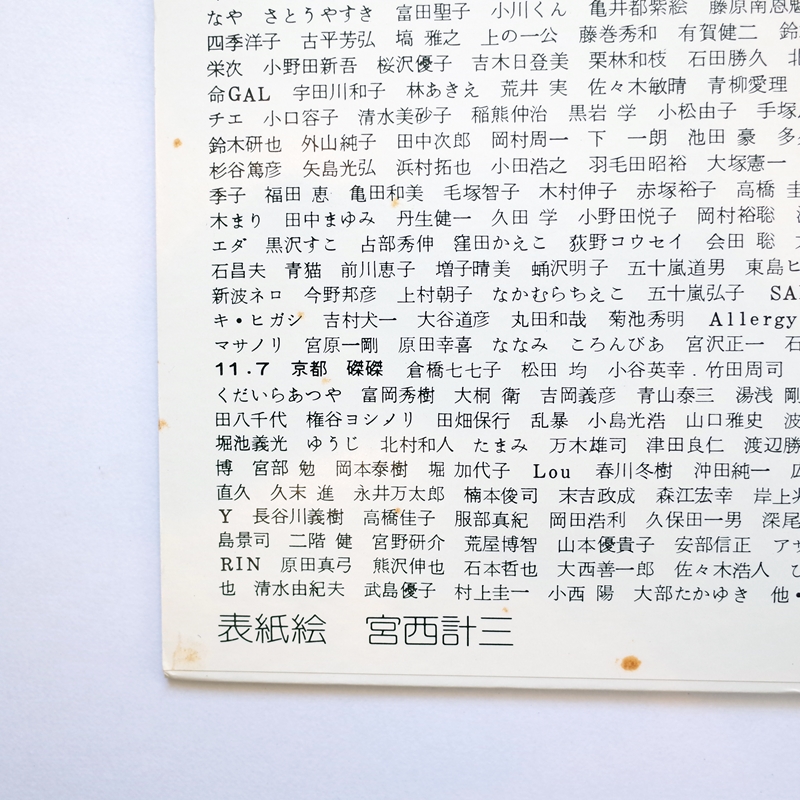 なや さとうやすき 富田聖子 小川くん 亀井都紫絵 藤原南恩
四季洋子 古平芳弘 塙 雅之 上の一公 藤巻秀和 有賀健二 鈴
栄次 小野田新吾 桜沢優子 吉木日登美 栗林和枝 石田勝久 北
命GAL 宇田川和子 林あきえ 荒井 実 佐々木敏晴 青柳愛理
チエ 小口容子 清水美砂子 稲熊仲治 黒岩 学 小松由子 手塚
鈴木研也 外山純子 田中次郎 岡村周一 下 一朗 池田 豪 多
杉谷篤彦 矢島光弘 浜村拓也 小田浩之 羽毛田昭裕 大塚憲一
季子 福田 恵 亀田和美 毛塚智子 木村伸子 赤塚裕子 高橋 圭
木まり 田中まゆみ 丹生健一 久田 学 小野田悦子 岡村裕聡
エダ 黒沢すこ 占部秀伸 窪田かえこ 荻野コウセイ 会田 聡
石昌夫 青猫 前川恵子 増子晴美 蛹沢明子 五十嵐道男 東島ヒ
新波ネロ 今野邦彦 上村朝子 なかむらちえこ 五十嵐弘子 SA
キ・ヒガシ 吉村犬一 大谷道彦 丸田和哉 菊池秀明 Allergy
マサノリ 宮原一剛 原田幸喜 ななみ ころんびあ 宮沢正一 石
11.7 京都 磔磔 倉橋七七子 松田 均 小谷英幸.竹田周司
くだいらあつや 富岡秀樹 大桐 衛 吉岡義彦 青山泰三 湯浅 剛
田八千代 権谷ヨシノリ 田畑保行 乱暴 小島光浩 山口雅史 波
堀池義光 ゆうじ 北村和人 たまみ 万木雄司 津田良仁 渡辺勝
博 宮部 勉 岡本泰樹 堀 加代子 Lou 春川冬樹 沖田純一 広
直久 久末 進 永井万太郎 楠本俊司 末吉政成 森江宏幸 岸上
Y 長谷川義樹 高橋佳子 服部真紀 岡田浩利 久保田一男 深尾
島景司 二階 健 宮野研介 荒屋博智 山本優貴子 安部信正 アサ
RIN 原田真弓 熊沢伸也 石本哲也 大西善一郎 佐々木浩人 ひ
也 清水由紀夫 武島優子 村上圭一 小西 陽 大部たかゆき 他・
表紙絵 宮西計三